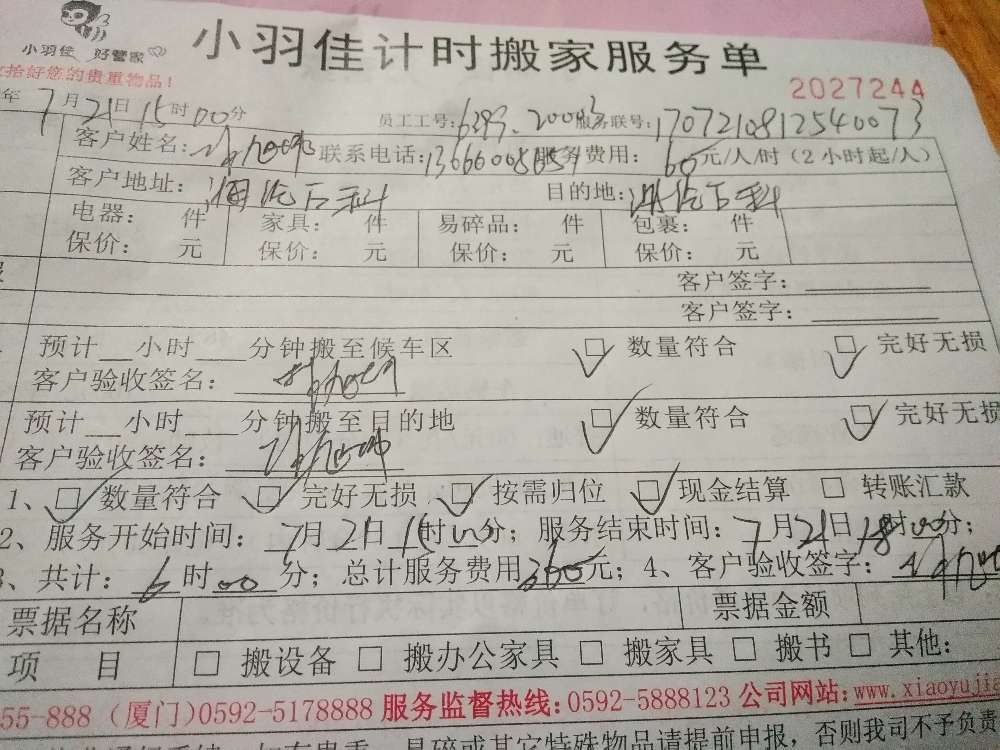 小羽佳 好管家
小羽佳计时搬家服务单
拾好您的贵重物品！
2027244
年7月21日15时00分
员工工号：6393、20003 服务联号：1707210812540073
客户姓名： 联系电话： 服务费用：60元/人/时（2小时起/人）
客户地址： 目的地：
电器： 件 家具： 件 易碎品： 件 包裹： 件
保价： 元 保价： 元 保价： 元 保价： 元
客户签字：
客户签字：
预计__小时___分钟搬至候车区 ☑ 数量符合 ☑ 完好无损
客户验收签名：
预计__小时___分钟搬至目的地 ☑ 数量符合 ☑ 完好无损
客户验收签名：
1、☑ 数量符合 ☑ 完好无损 ☑ 按需归位 ☑ 现金结算 □ 转账汇款
2、服务开始时间：7月21日15时00分；服务结束时间：7月21日18时00分；
、共计：6时00分；总计服务费用360元；4、客户验收签字：
票据名称 票据金额
项 目 □ 搬设备 □ 搬办公家具 □ 搬家具 □ 搬书 □ 其他：
55-888（厦门）0592-5178888 服务监督热线：0592-5888123 公司网站：www.xiaoyujia
易碎或其它特殊物品请提前申报，否则我司不予负责